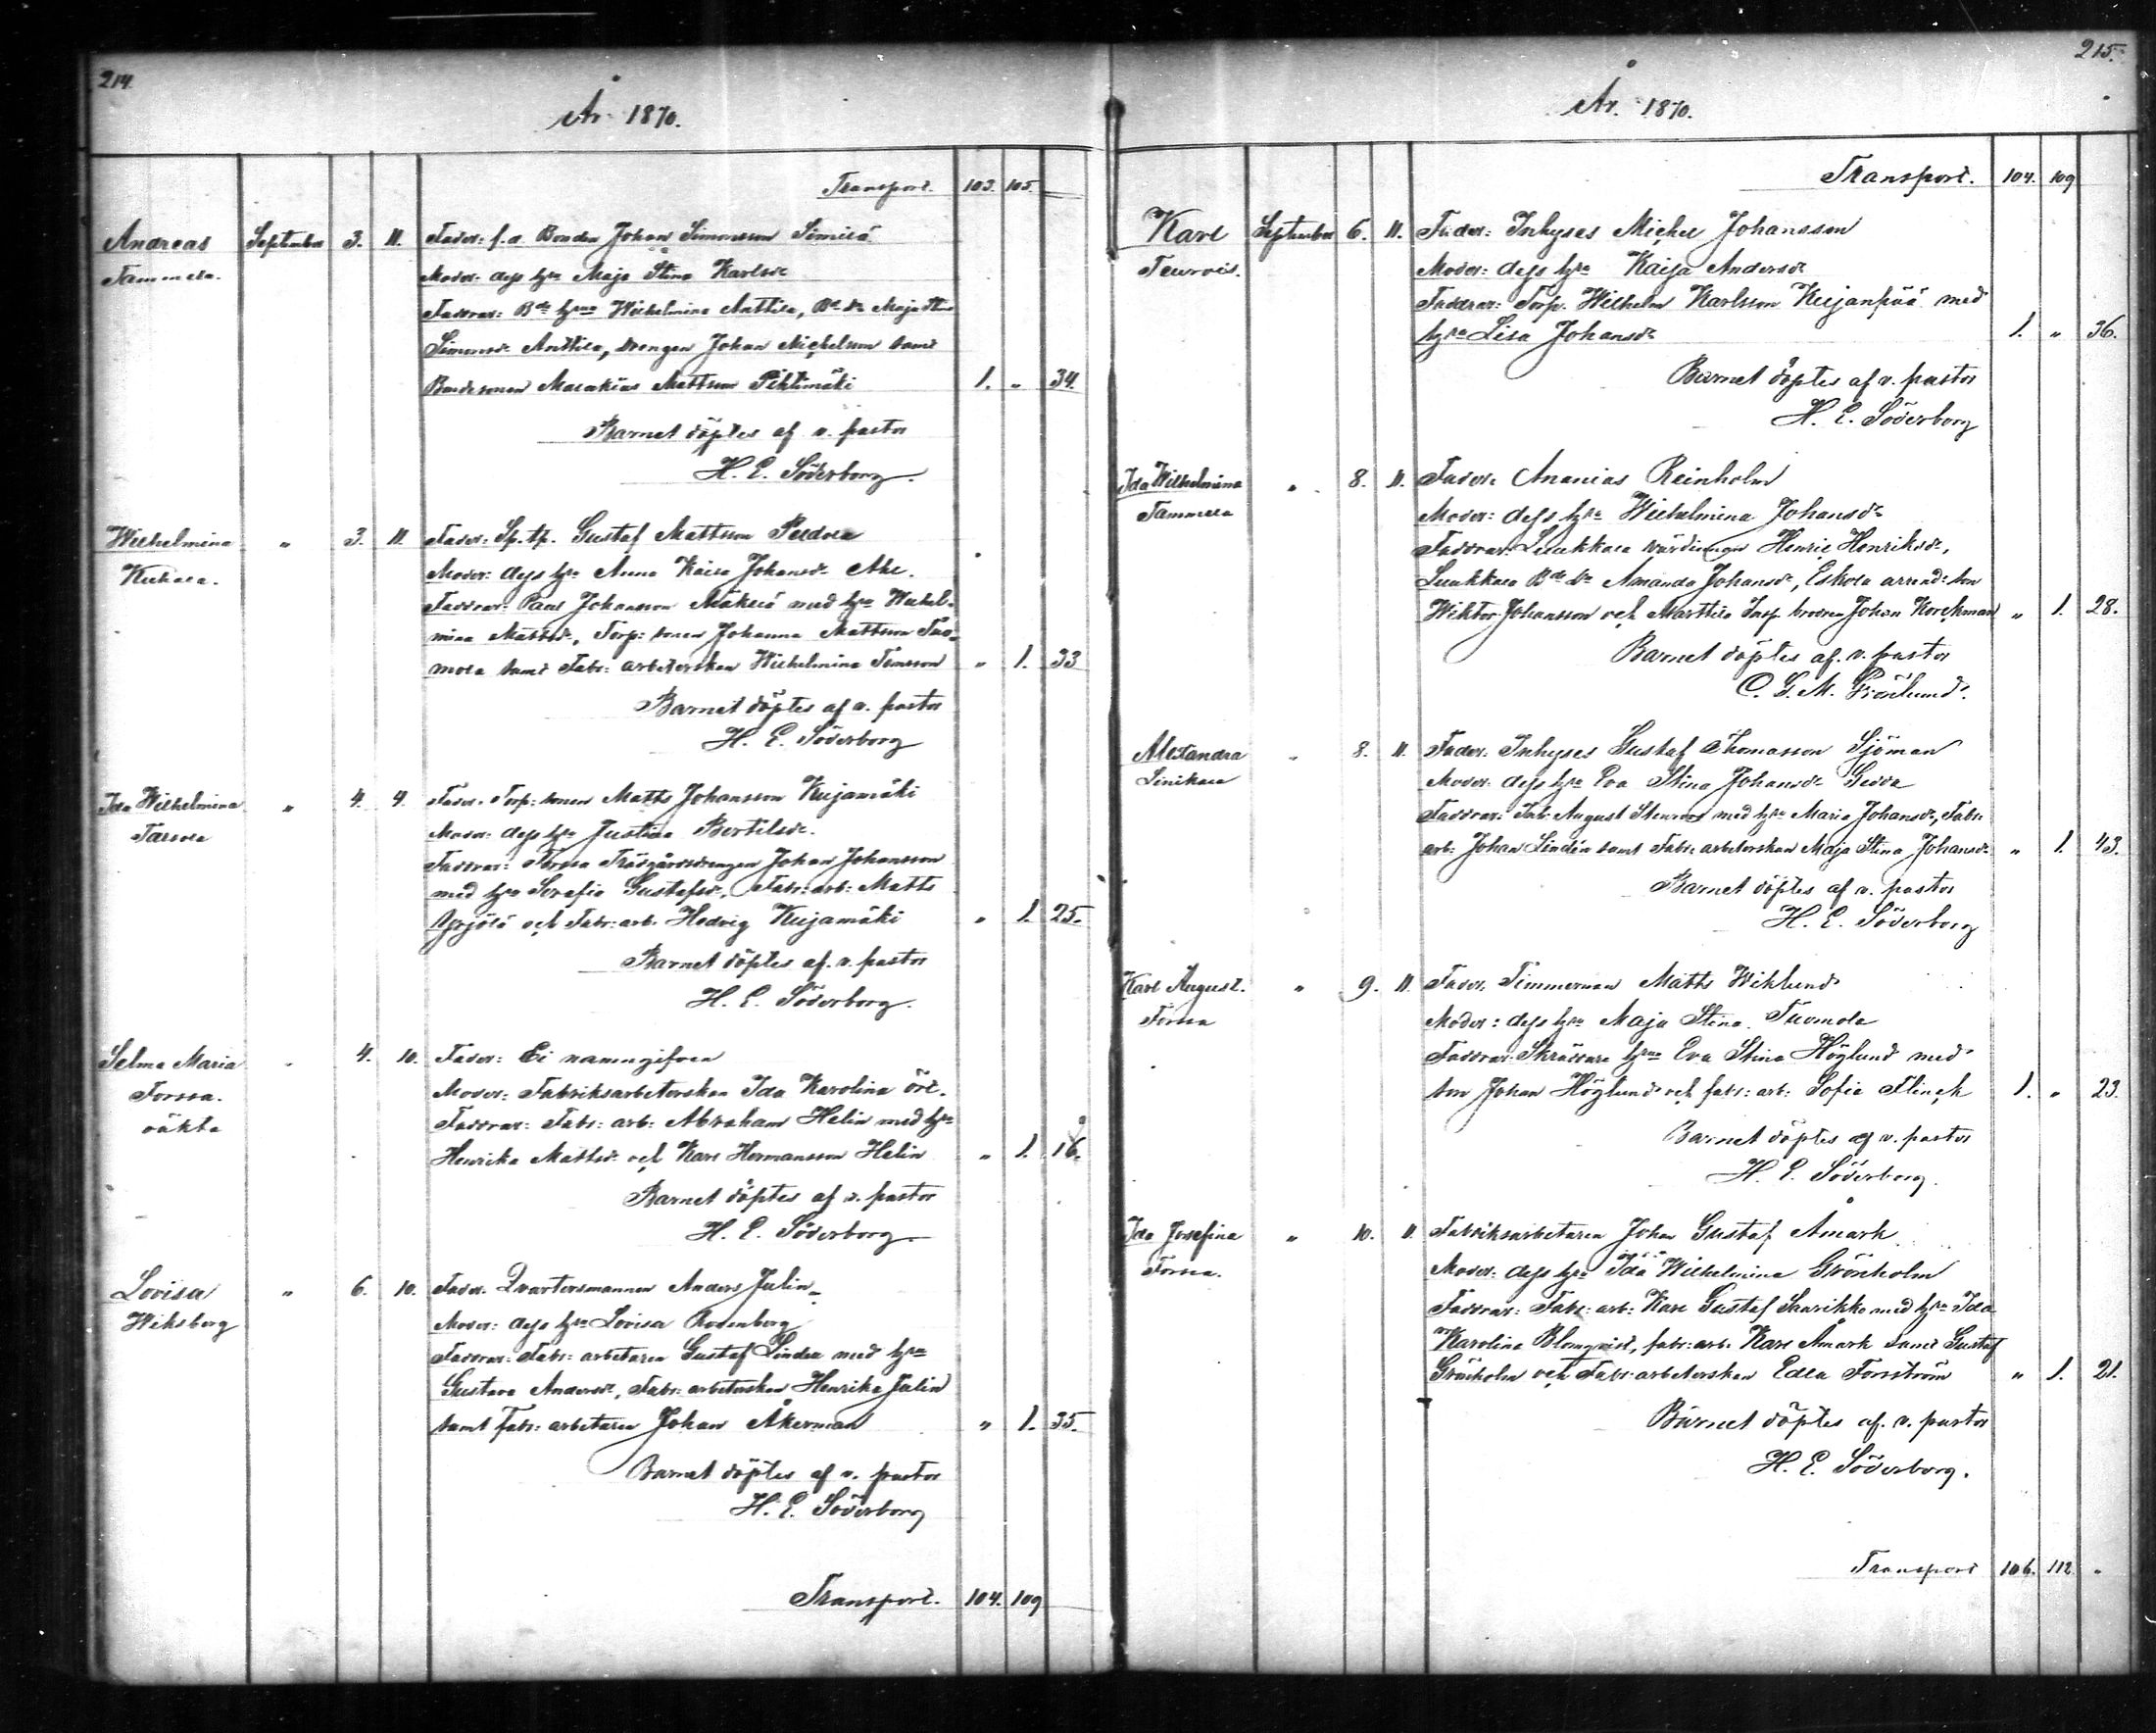 214.
År 1870.
Transport. 103. 105.
Andreas September 3. 11. Fader: f.d. Bonden Johan Simonsson Similä
Tammela. Moder: dess hru Maja Stina Karlsdr
Faddrar: Bde hrna Wilhelmina Anttila, Bde dr Maja Stina
Simonsdr Anttila, drengen Johan Michelsson samt
Bondesonen Malakias Mattsson Pihtimäki 1. " 34.
Barnet döptes af v. pastor
H. E. Söderborg.
Wilhelmina " 3. 11. Fader: Sp. tp. Gustaf Mattsson
Kuhala. Moder: dess hru Anna Kaisa Johansdr
Faddrar: Paul Johansson Mäkelä med hru Wilhel-
mina Mattsdr, Torp: sonen Johanna Mattsson Tuo-
mola samt Fabr: arbeterskan Wilhelmina Tomsson " 1. 33
Barnet döptes af v. pastor
H. E. Söderborg
Ida Wilhelmina " 4. 4. Fader. Torp: sonen Matts Johansson Kujamäki
Moder: dess hru Justina Bertilsdr.
Faddrar: Forssa Trädgårdsdrengen Johan Johansson
med hru Serafia Gustafsdr, Fabr: arb: Matts
Yrjölä och Fabr: arb. Hedvig Kujamäki " 1. 25.
Barnet döptes af. v. pastor
H. E. Söderborg.
Selma Maria " 4. 10. Fader: Ei namngifven
Forssa. Moder: Fabriksarbeterskan Ida Karolina
oäkta Faddrar: Fabr: arb: Abraham Helin med hru
Henrika Mattsdr och Karl Hermansson Helin " 1. 16.
Barnet döptes af v. pastor
H. E. Söderborg
Lovisa " 6. 10. Fader. Qvartersmannen Anders Julin
Wiksberg Moder: dess hru Lovisa Rosenberg
Faddrar: Fabr: arbetaren Gustaf Linden med hru
Gustava Andersdr, Fabr: arbeterskan Henrika Julin
samt Fabr: arbetaren Johan Åkerman " 1. 35.
Barnet döptes af v. pastor
H. E. Söderborg
Transport. 104. 109
215.
År. 1870.
Transport. 104. 109
Karl September 6. 11. Fader: Inhyses Michel Johansson
Teuroil. Moder: dess hru Kaisa Andersdr
Faddrar: Torp. Wilhelm Karlsson Kujanpää med
hru Lisa Johansdr 1. " 36.
Barnet döptes af v. pastor
H. E. Söderborg
Ida Wilhelmina " 8. 11. Fader. Ananias Reinholm
Tammela Moder: dess hru Wilhelmina Johansdr
Faddrar: Luukkala värdinnan Henric Henriksdr,
Luukkala Bde dr Amanda Johansdr, Eskola arrend: son
Wiktor Johansson och Marttila Insp. brodren Johan Korckman " 1. 28.
Barnet döptes af. v. pastor
C. G. M. Gröhlund.
Alexandra " 8. 11. Fader. Inhyses Gustaf Thomasson Sjöman
Linikala Moder. dess hru Eva Stina Johansdr Gedda
Faddrar: Inh: August Stenroos med hru Maria Johansdr, Fabr:
arb: Johan Lindén samt Fabr: arbeterskan Maja Stina Johansdr " 1. 43.
Barnet döptes af v. pastor
H. E. Söderborg
Karl August. " 9. 11. Fader. Timmerman Matts Wiklund
Forssa Moder: dess hru Maja Stina Tuomola
Faddrar: Skräddare hrna Eva Stina Höglund med
son Johan Höglund och fabr: arb: Sofia Flinck 1. " 23.
Barnet döptes af v. pastor
H. E. Söderborg.
Ida Josefina " 10. 11. Fabriksarbetaren Johan Gustaf Åmark
Forssa. Moder: dess hru Ida Wilhelmina Grönholm
Faddrar: Fabr: arb: Karl Gustaf Saarikko med hru Ida
Karolina Blomqvist, fabr: arb. Karl Åmark samt Gustaf
Grönholm och Fabr: arbeterskan Edla Forsström " 1. 21.
Barnet döptes af. v. pastor
H. E. Söderborg.
Transport 106. 112. "